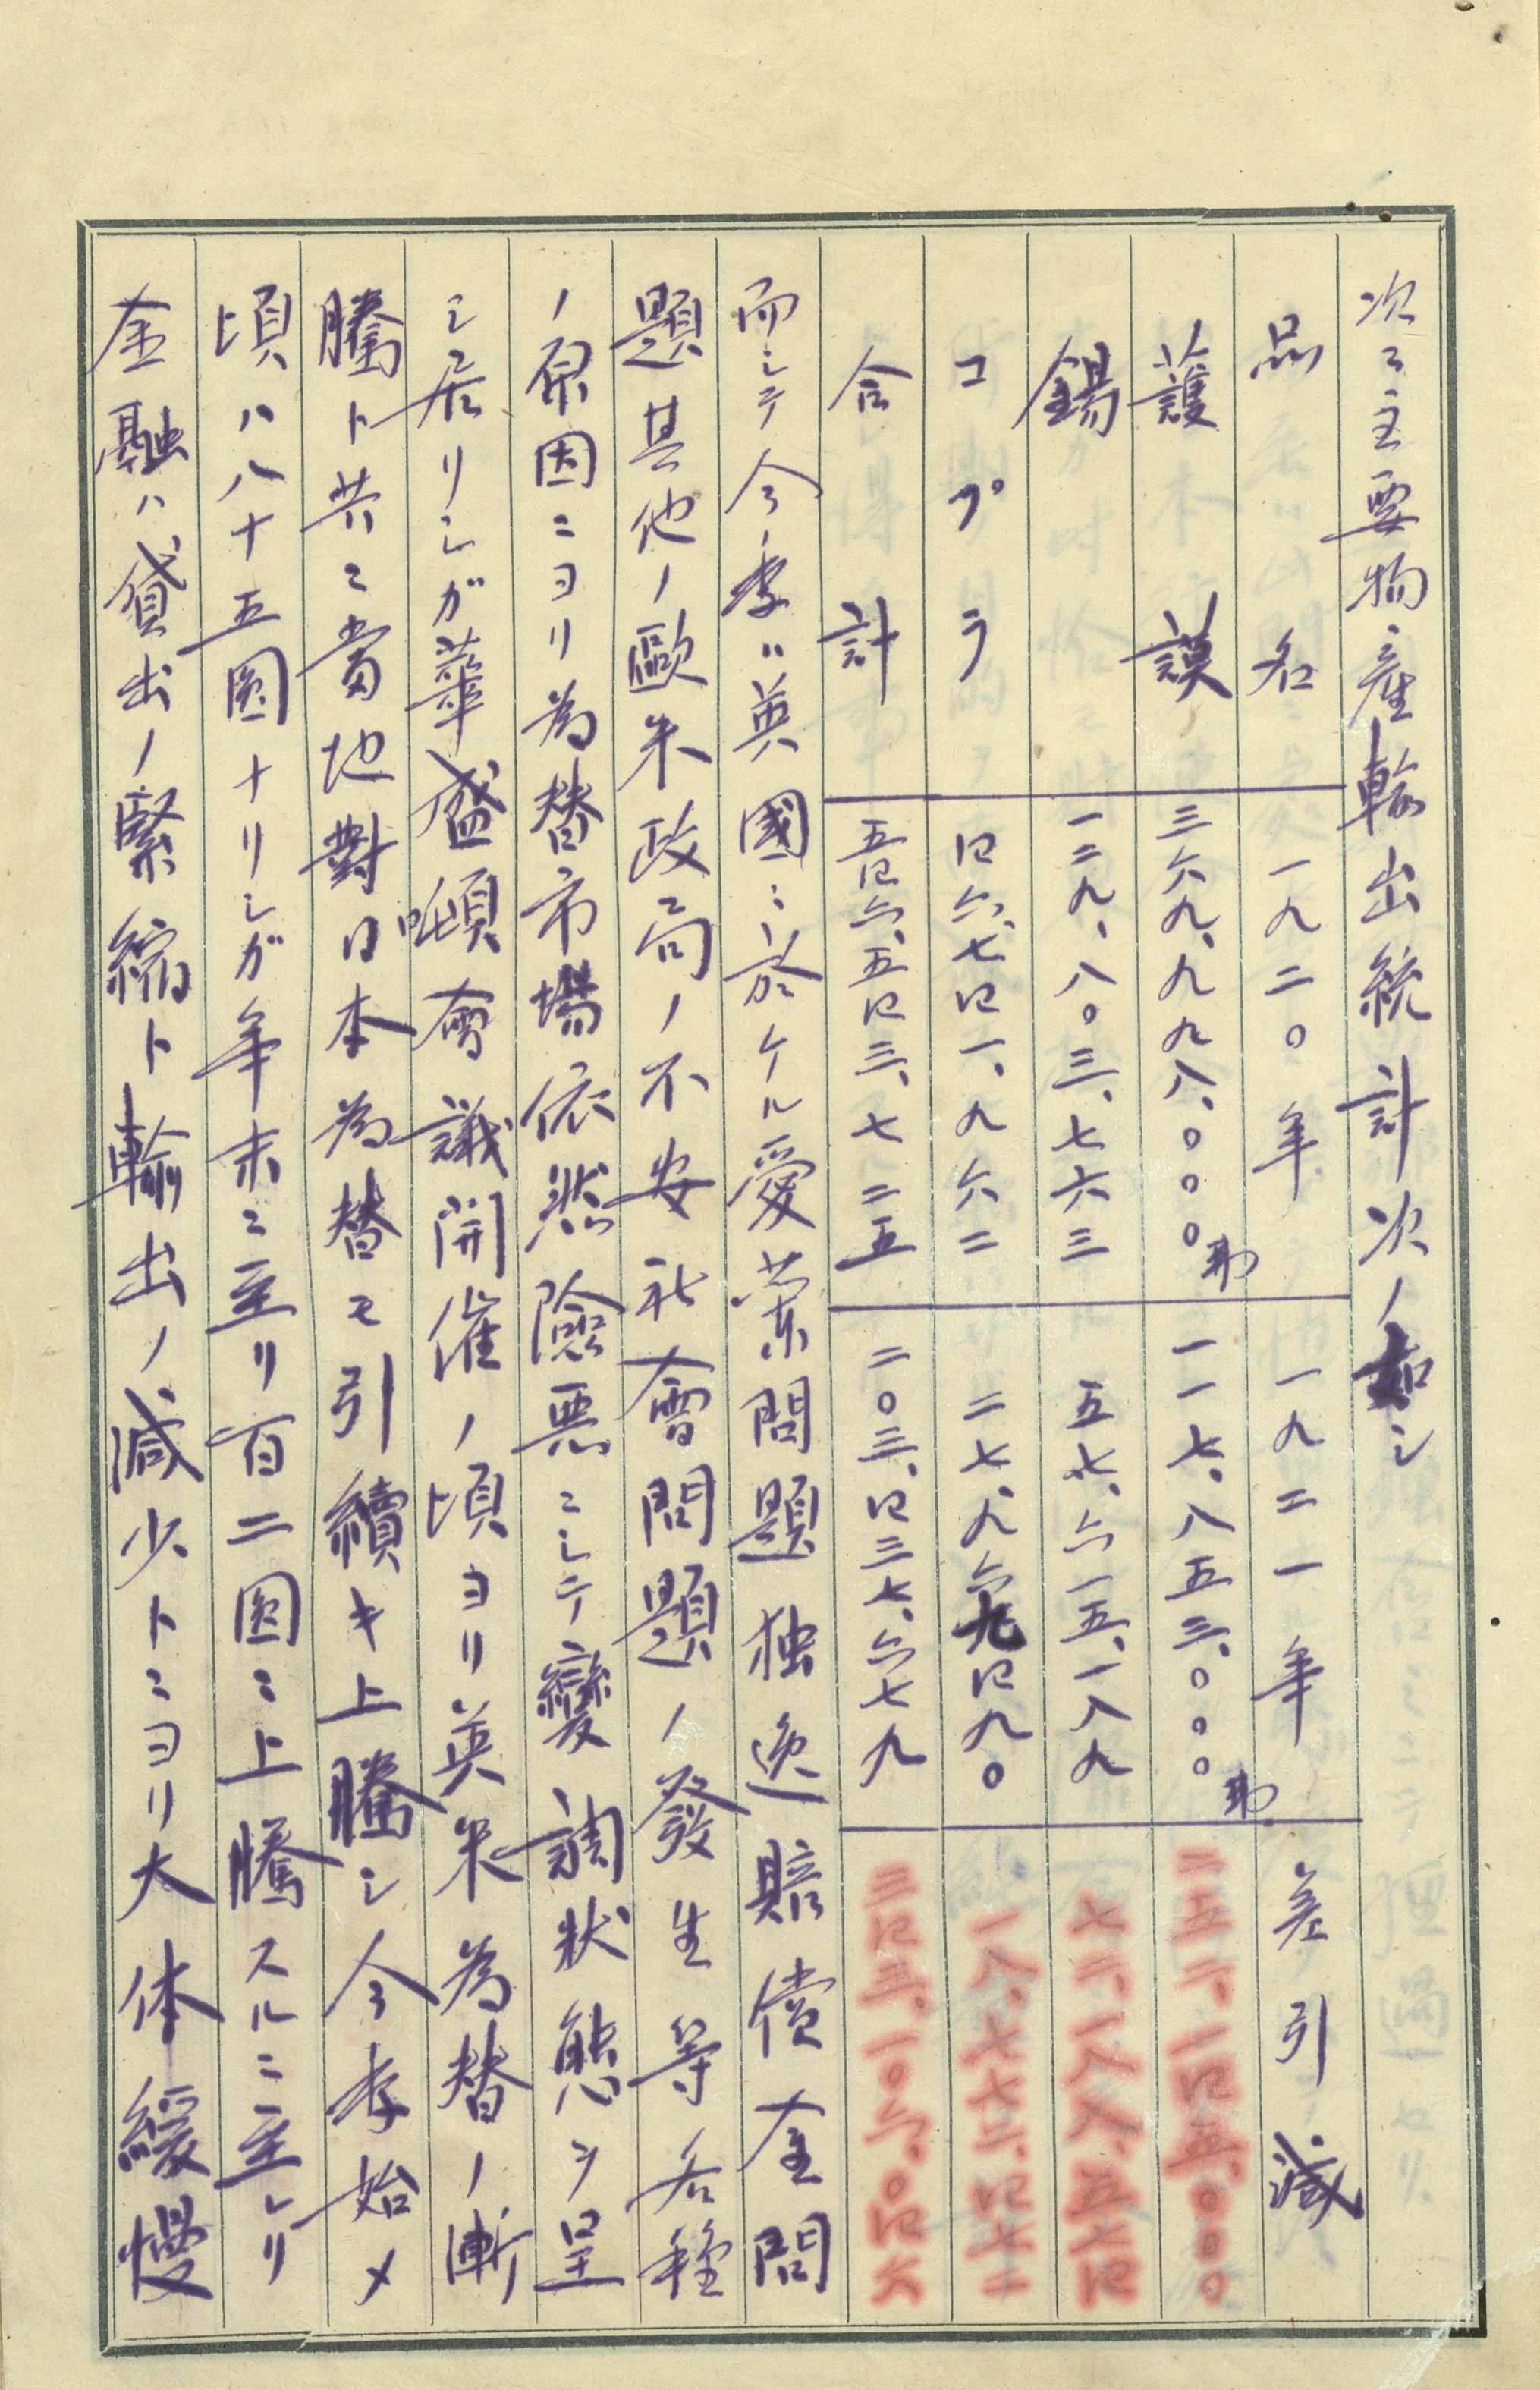 次ニ主要物産輸出統計次ノ如シ
品名 一九二〇年 一九二一年 差引減
護謨 三六九、九九八、〇〇〇弗 一一七、八五三、〇〇〇弗 二五二、一四五、〇〇〇
錫 一二九、八〇三、七六三 五七、六一五、一八九 七二、一八八、五七四
コプラ 四六、七四一、九六二 二七、九六九、四九〇 一八、七七二、四七二
合計 五四六、五四三、七二五 二〇三、四三七、六七九 三四三、一〇六、〇四六
而シテ今季ハ英國ニ於ケル愛蘭問題独逸賠償金問
題其他ノ歐米政局ノ不安社會問題ノ發生等各種
ノ原因ニヨリ為替市場依然險悪ニシテ變調状態ヲ呈
シ居リシガ華盛頓會議開催ノ頃ヨリ英米為替ノ漸
騰ト共ニ當地對日本為替モ引續キ上騰シ今季始メ
頃ハ八十五圓ナリシガ年末ニ至リ百二圓ニ上騰スルニ至レリ
金融ハ貸出ノ緊縮ト輸出ノ減少トニヨリ大体緩慢